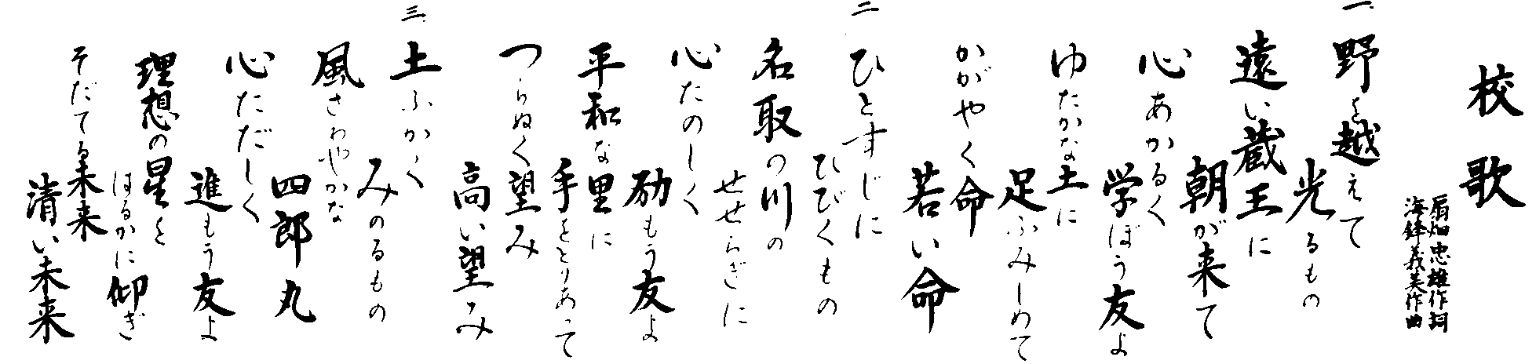 校歌
扇畑忠雄作詞
海鋒義美作曲
一、
野を越えて
光るもの
遠い蔵王に
朝が来て
心あかるく
学ぼう友よ
ゆたかな土に
足ふみしめて
かがやく命
若い命
二、
ひとすじに
ひびくもの
名取の川の
せせらぎに
心たのしく
励もう友よ
平和な里に
手をとりあって
つらぬく望み
高い望み
三、
土ふかく
みのるもの
風さわやかな
四郎丸
心ただしく
進もう友よ
理想の星を
はるかに仰ぎ
そだてる未来
清い未来